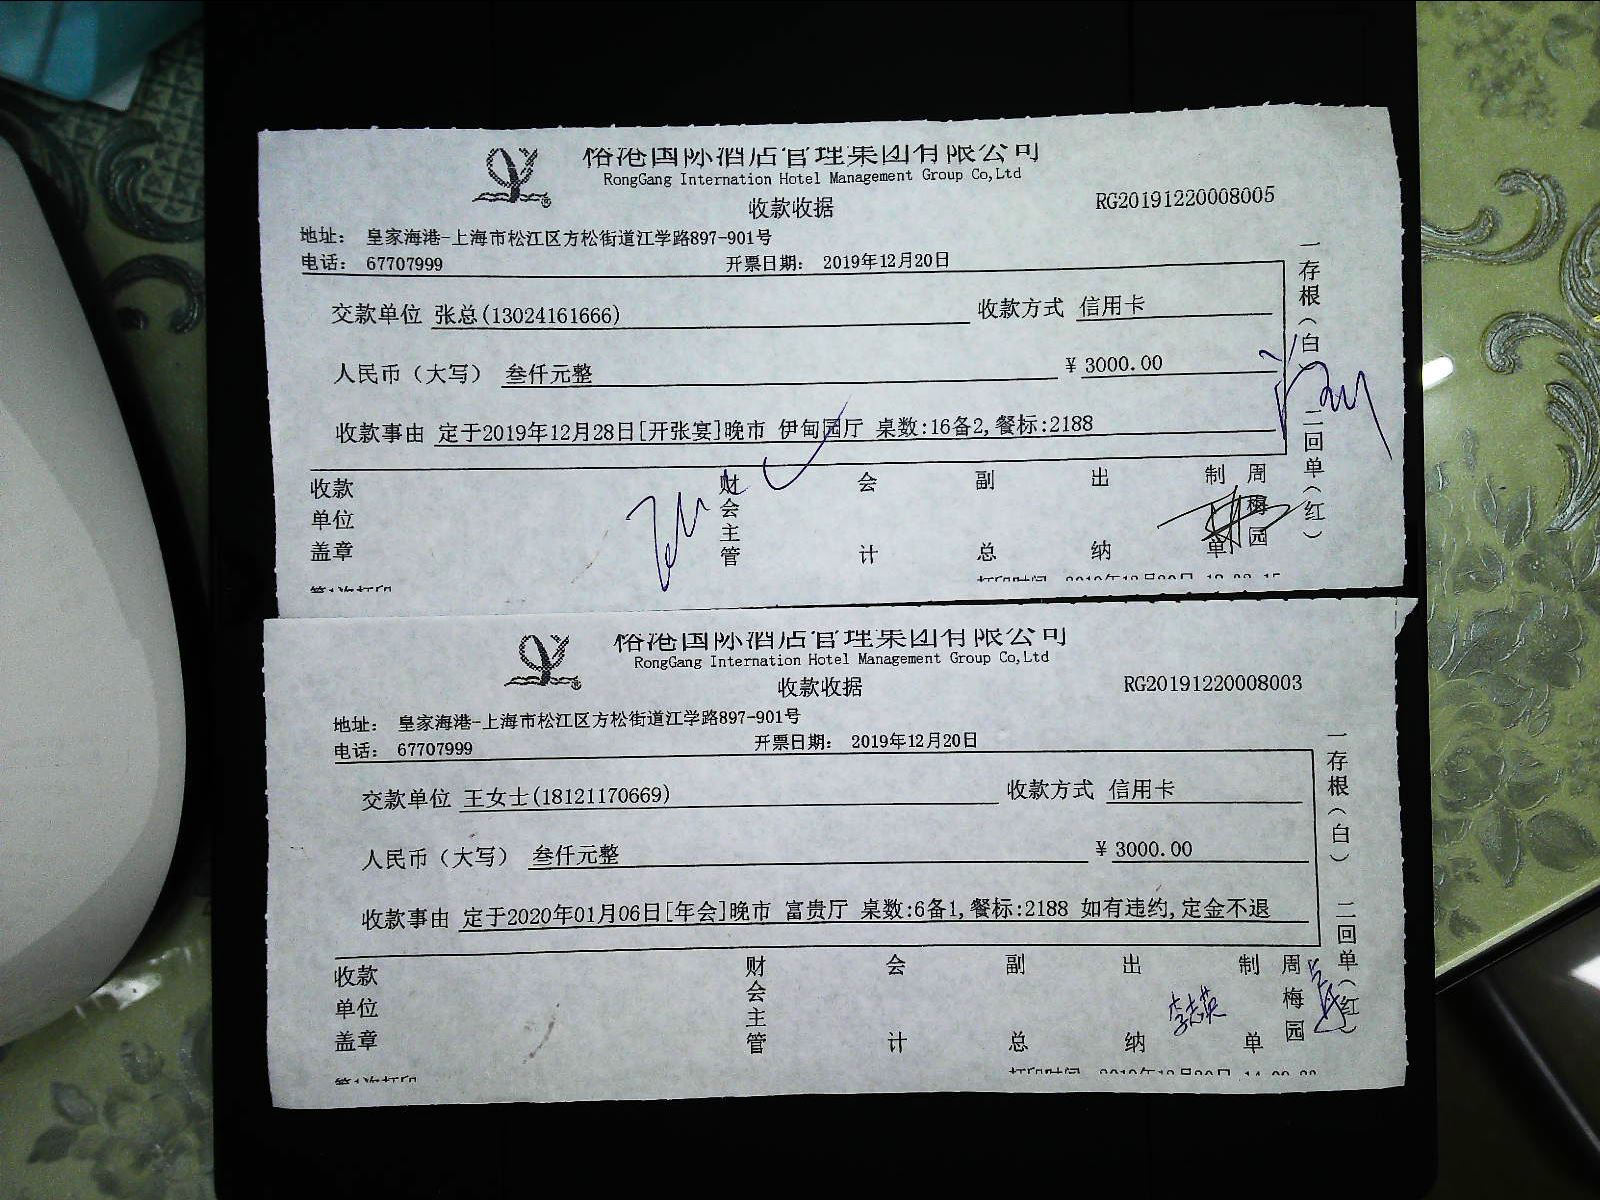 裕港国际酒店管理集团有限公司
RongGang Internation Hotel Management Group Co,Ltd
收款收据
RG20191220008005
地址： 皇家海港-上海市松江区方松街道江学路897-901号
电话： 67707999 开票日期： 2019年12月20日
交款单位 张总(13024161666) 收款方式 信用卡
人民币（大写） 叁仟元整 ￥3000.00
收款事由 定于2019年12月28日[开张宴]晚市 伊甸园厅 桌数:16备2,餐标:2188
收款单位盖章 财会主管 会计 副总 出纳 制单 周梅园
一存根（白） 二回单（红）
第1次打印
裕港国际酒店管理集团有限公司
RongGang Internation Hotel Management Group Co,Ltd
收款收据
RG20191220008003
地址： 皇家海港-上海市松江区方松街道江学路897-901号
电话： 67707999 开票日期： 2019年12月20日
交款单位 王女士(18121170669) 收款方式 信用卡
人民币（大写） 叁仟元整 ￥3000.00
收款事由 定于2020年01月06日[年会]晚市 富贵厅 桌数:6备1,餐标:2188 如有违约,定金不退
收款单位盖章 财会主管 会计 副总 出纳 制单 周梅园
李志英
一存根（白） 二回单（红）
第1次打印